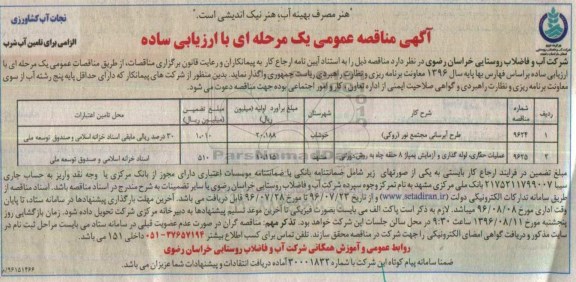 "هنر مصرف بهینه آب، هنر نیک اندیشی است."
نجات آب کشاورزی
الزامی برای تامین آب شرب
آگهی مناقصه عمومی یک مرحله ای با ارزیابی ساده
شرکت آب و فاضلاب روستایی خراسان رضوی در نظر دارد مناقصه ذیل را به استناد آیین نامه ارجاع کار به پیمانکاران و رعایت قانون برگزاری مناقصات، از طریق مناقصات عمومی یک مرحله ای با
ارزیابی ساده براساس فهارس بها پایه سال ۱۳۹۶ معاونت برنامه ریزی و نظارت راهبردی ریاست جمهوری واگذار نماید. بدین منظور از شرکت های پیمانکار که دارای حداقل پایه پنج رشته آب از سوی
معاونت برنامه ریزی و نظارت راهبردی و گواهی صلاحیت ایمنی از اداره تعاون، کار و امور اجتماعی بوده جهت مناقصه دعوت می شود.
ردیف شماره مناقصه شرح کار شهرستان مبلغ برآورد اولیه (میلیون ریال) مبلغ تضمین (میلیون ریال) محل تامین اعتبارات
۱ ۹۶۲۴ طرح آبرسانی مجتمع نور (روکی) خوشاب ۲۰.۱۸۸ ۱.۰۱۰ ۳۰ درصد ریالی مابقی اسناد خزانه اسلامی و صندوق توسعه ملی
۲ ۹۶۲۵ عملیات حفاری، لوله گذاری و آزمایش پمپاژ ۸ حلقه چاه به روش دورانی ۵۱۰ اسناد خزانه اسلامی و صندوق توسعه ملی
مبلغ تضمین در فرآیند ارجاع کار بایستی به یکی از صورتهای زیر شامل ضمانتنامه بانکی یا ضمانتنامه موسسات اعتباری دارای مجوز از بانک مرکزی یا وجه نقد واریز به حساب جاری
سیبا ۲۱۷۵۲۱۱۷۹۹۰۰۷ بانک ملی مرکزی مشهد به نام تمرکز وجوه سپرده شرکت آب و فاضلاب روستایی خراسان رضوی یا سایر تضمینات به شرح مندرج در اسناد مناقصه باشد. اسناد مناقصه از
طریق سامانه تدارکات الکترونیکی دولت (www.setadiran.ir) و از تاریخ ۹۶/۰۷/۲۳ تا مورخ ۹۶/۰۷/۲۸ قابل دریافت می باشد. آخرین مهلت بارگذاری پیشنهادها در سامانه ستاد، تا پایان
وقت اداری مورخ ۹۶/۰۸/۰۸ میباشد. لازم به ذکر است پاکت الف می بایست بصورت فیزیکی تا آخرین موعد تسلیم پیشنهادها به دبیرخانه مرکزی شرکت تحویل داده شود. زمان بازگشایی روز
پنجشنبه مورخ ۱۳۹۶/۰۸/۱۱ ساعت ۹:۳۰ در محل سالن جلسات این شرکت خواهد بود. تذکر مهم: مناقصه گران در صورت عدم عضویت قبلی در سامانه ستاد می بایست مراحل ثبت نام در
سایت مذکور و دریافت گواهی امضای الکترونیکی را جهت شرکت در مناقصه محقق سازند. تلفن تماس برای کسب اطلاع بیشتر ۳۷۶۵۷۱۹۴-۰۵۱ داخلی ۱۵۱ می باشد.
روابط عمومی و آموزش همگانی شرکت آب و فاضلاب روستایی خراسان رضوی
ضمنا سامانه پیام کوتاه این شرکت با شماره ۳۰۰۰۱۸۳۳ آماده دریافت انتقادات و پیشنهادات شما عزیزان می باشد.
۹۶۱۵۱۲۶۶/م